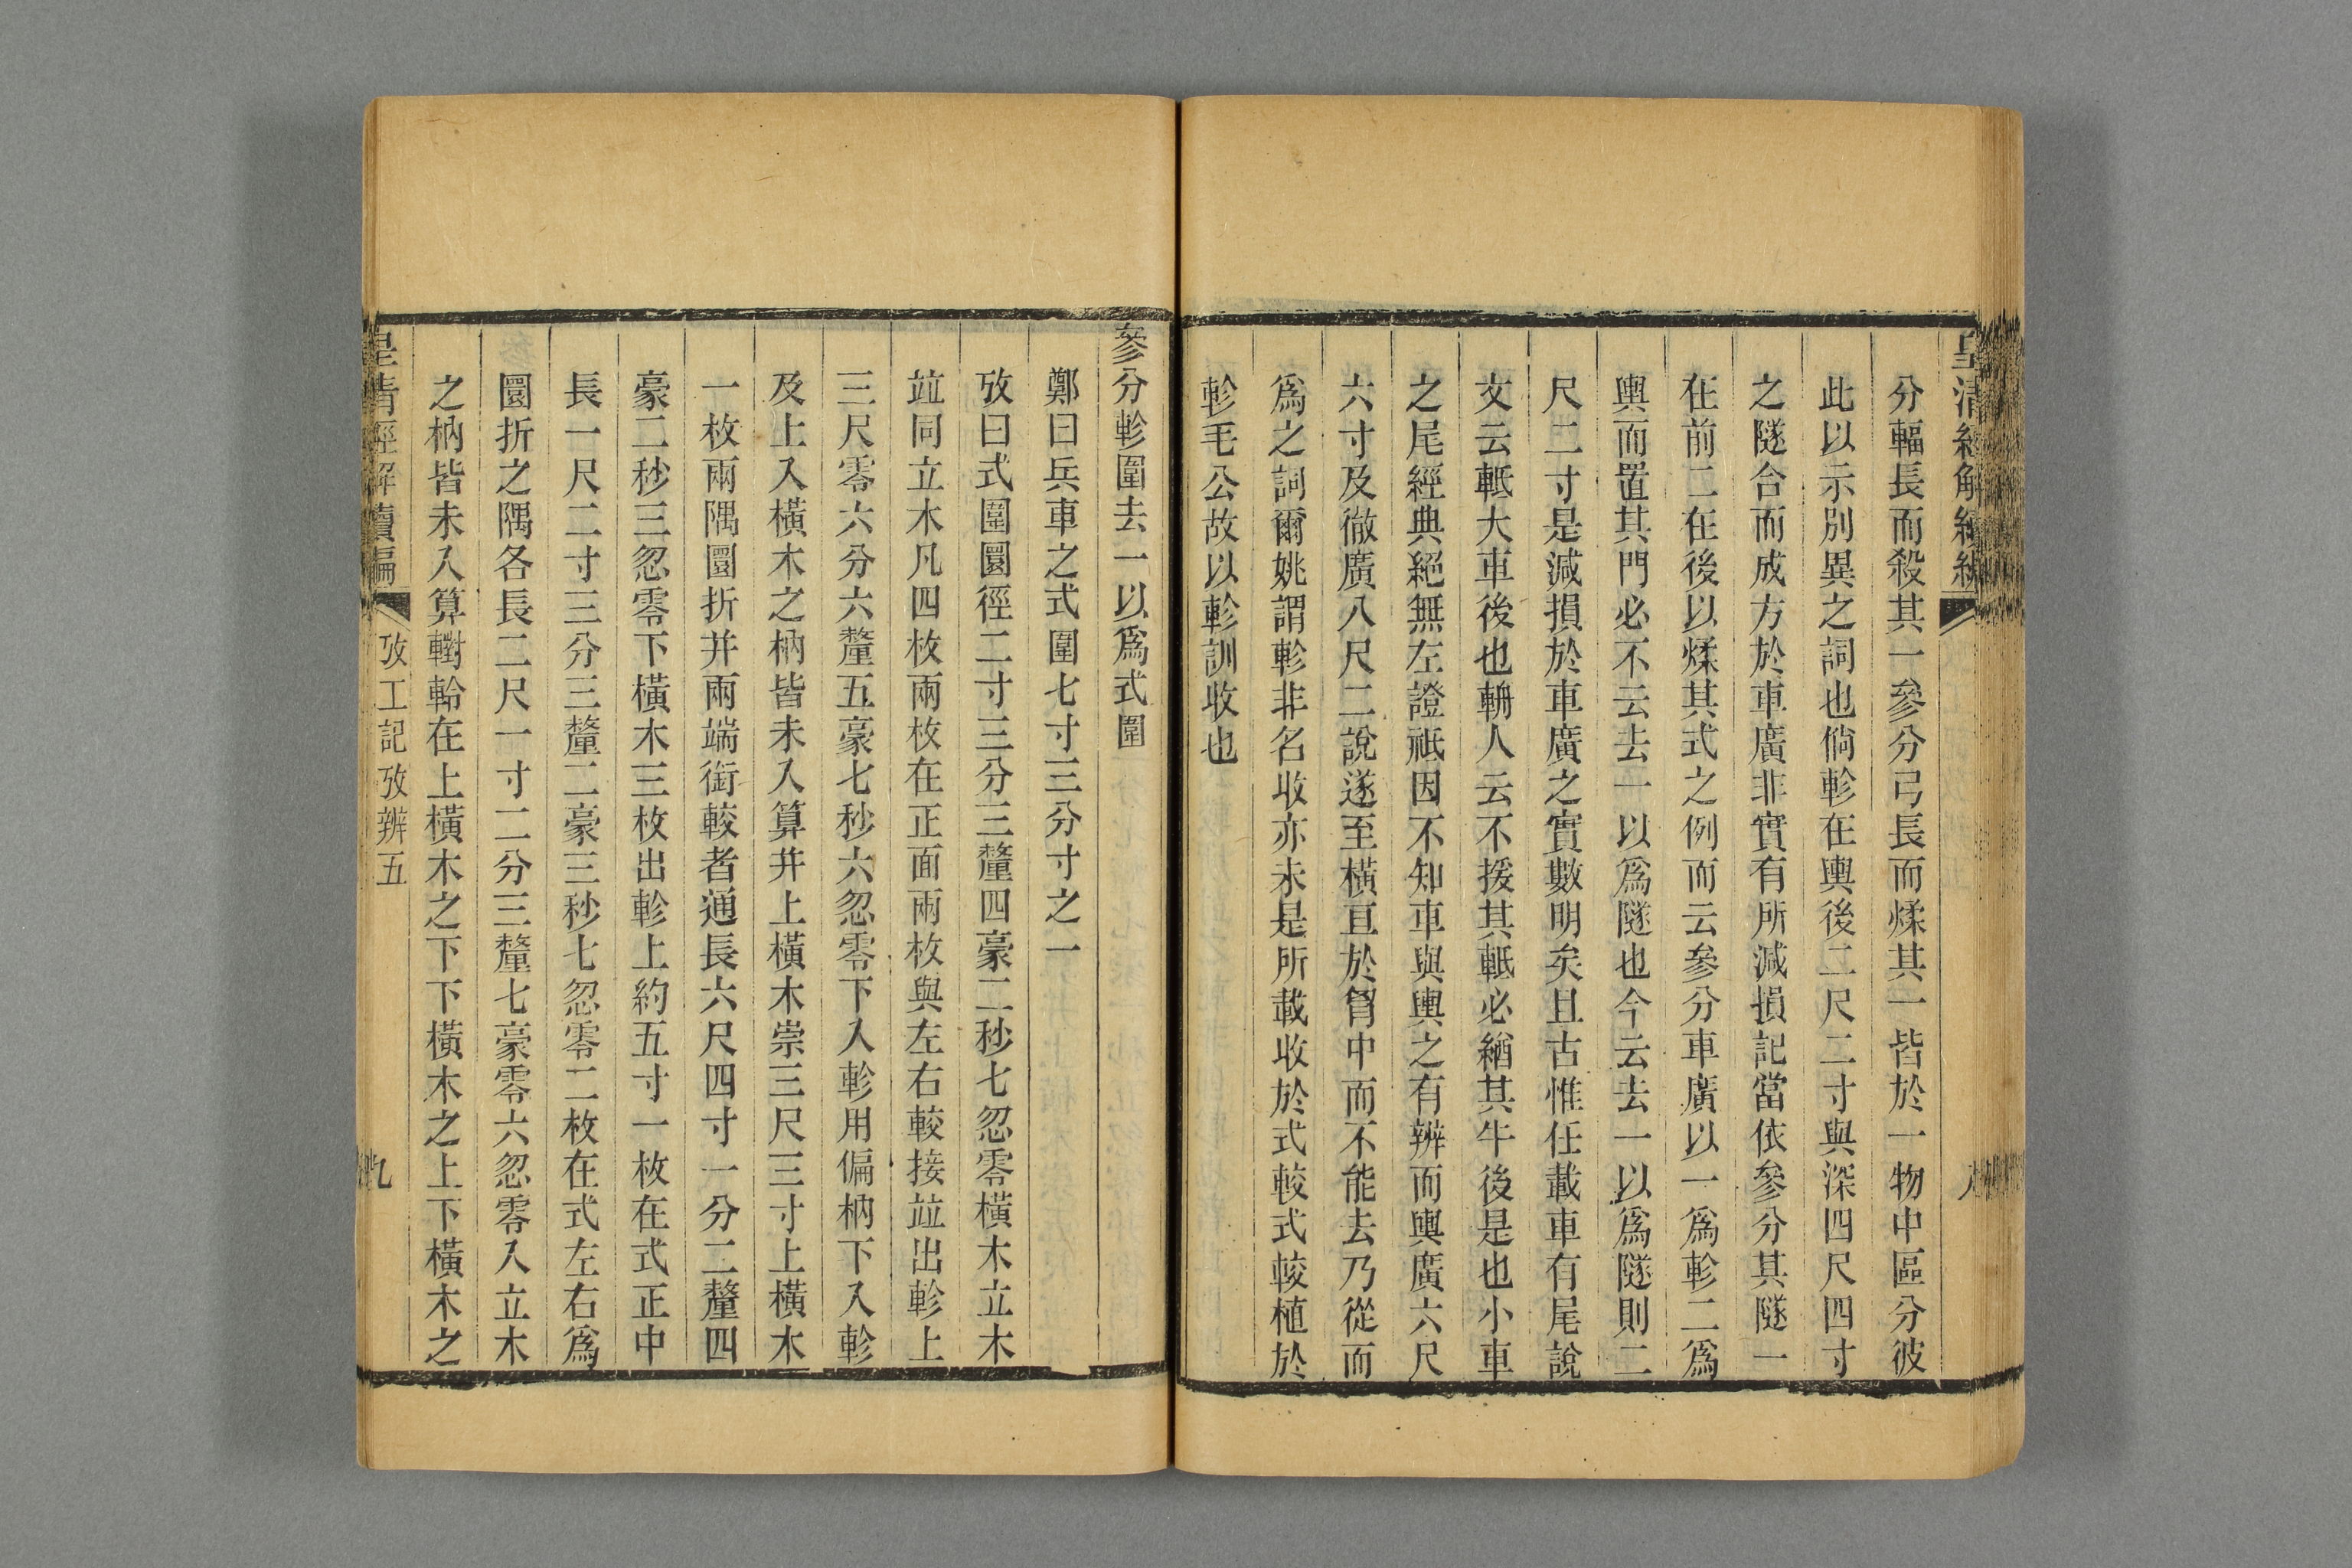 皇清經解續編
分輻長而殺其一參分弓長而煣其一皆於一物中區分彼
此以示別異之詞也倘軫在輿後二尺二寸與深四尺四寸
之隧合而成方於車廣非實有所減損記當依參分其隧一
在前二在後以煣其式之例而云參分車廣以一爲軫二爲
輿而置其門必不云去一以爲隧也今云去一以爲隧則二
尺二寸是減損於車廣之實數明矣且古惟任載車有尾說
文云軧大車後也輈人云不援其軧必緧其牛後是也小車
之尾經典絕無左證祇因不知車與輿之有辨而輿廣六尺
六寸及徹廣八尺二說遂至橫亘於胷中而不能去乃從而
爲之詞爾姚謂軫非名收亦未是所載收於式較式較植於
軫毛公故以軫訓收也
參分軫圍去一以爲式圍
鄭曰兵車之式圍七寸三分寸之一
攷曰式圍圜徑二寸三分三釐四豪二秒七忽零橫木立木
竝同立木凡四枚兩枚在正面兩枚與左右較接竝出軫上
三尺零六分六釐五豪七秒六忽零下入軫用偏枘下入軫
及上入橫木之枘皆未入算并上橫木崇三尺三寸上橫木
一枚兩隅圜折并兩端銜較者通長六尺四寸一分二釐四
豪二秒三忽零下橫木三枚出軫上約五寸一枚在式正中
長一尺二寸三分三釐二豪三秒七忽零二枚在式左右爲
圜折之隅各長二尺一寸二分三釐七豪零六忽零入立木
之枘皆未入算轛軨在上橫木之下下橫木之上下橫木之
皇清經解續編
攷工記攷辨五
九